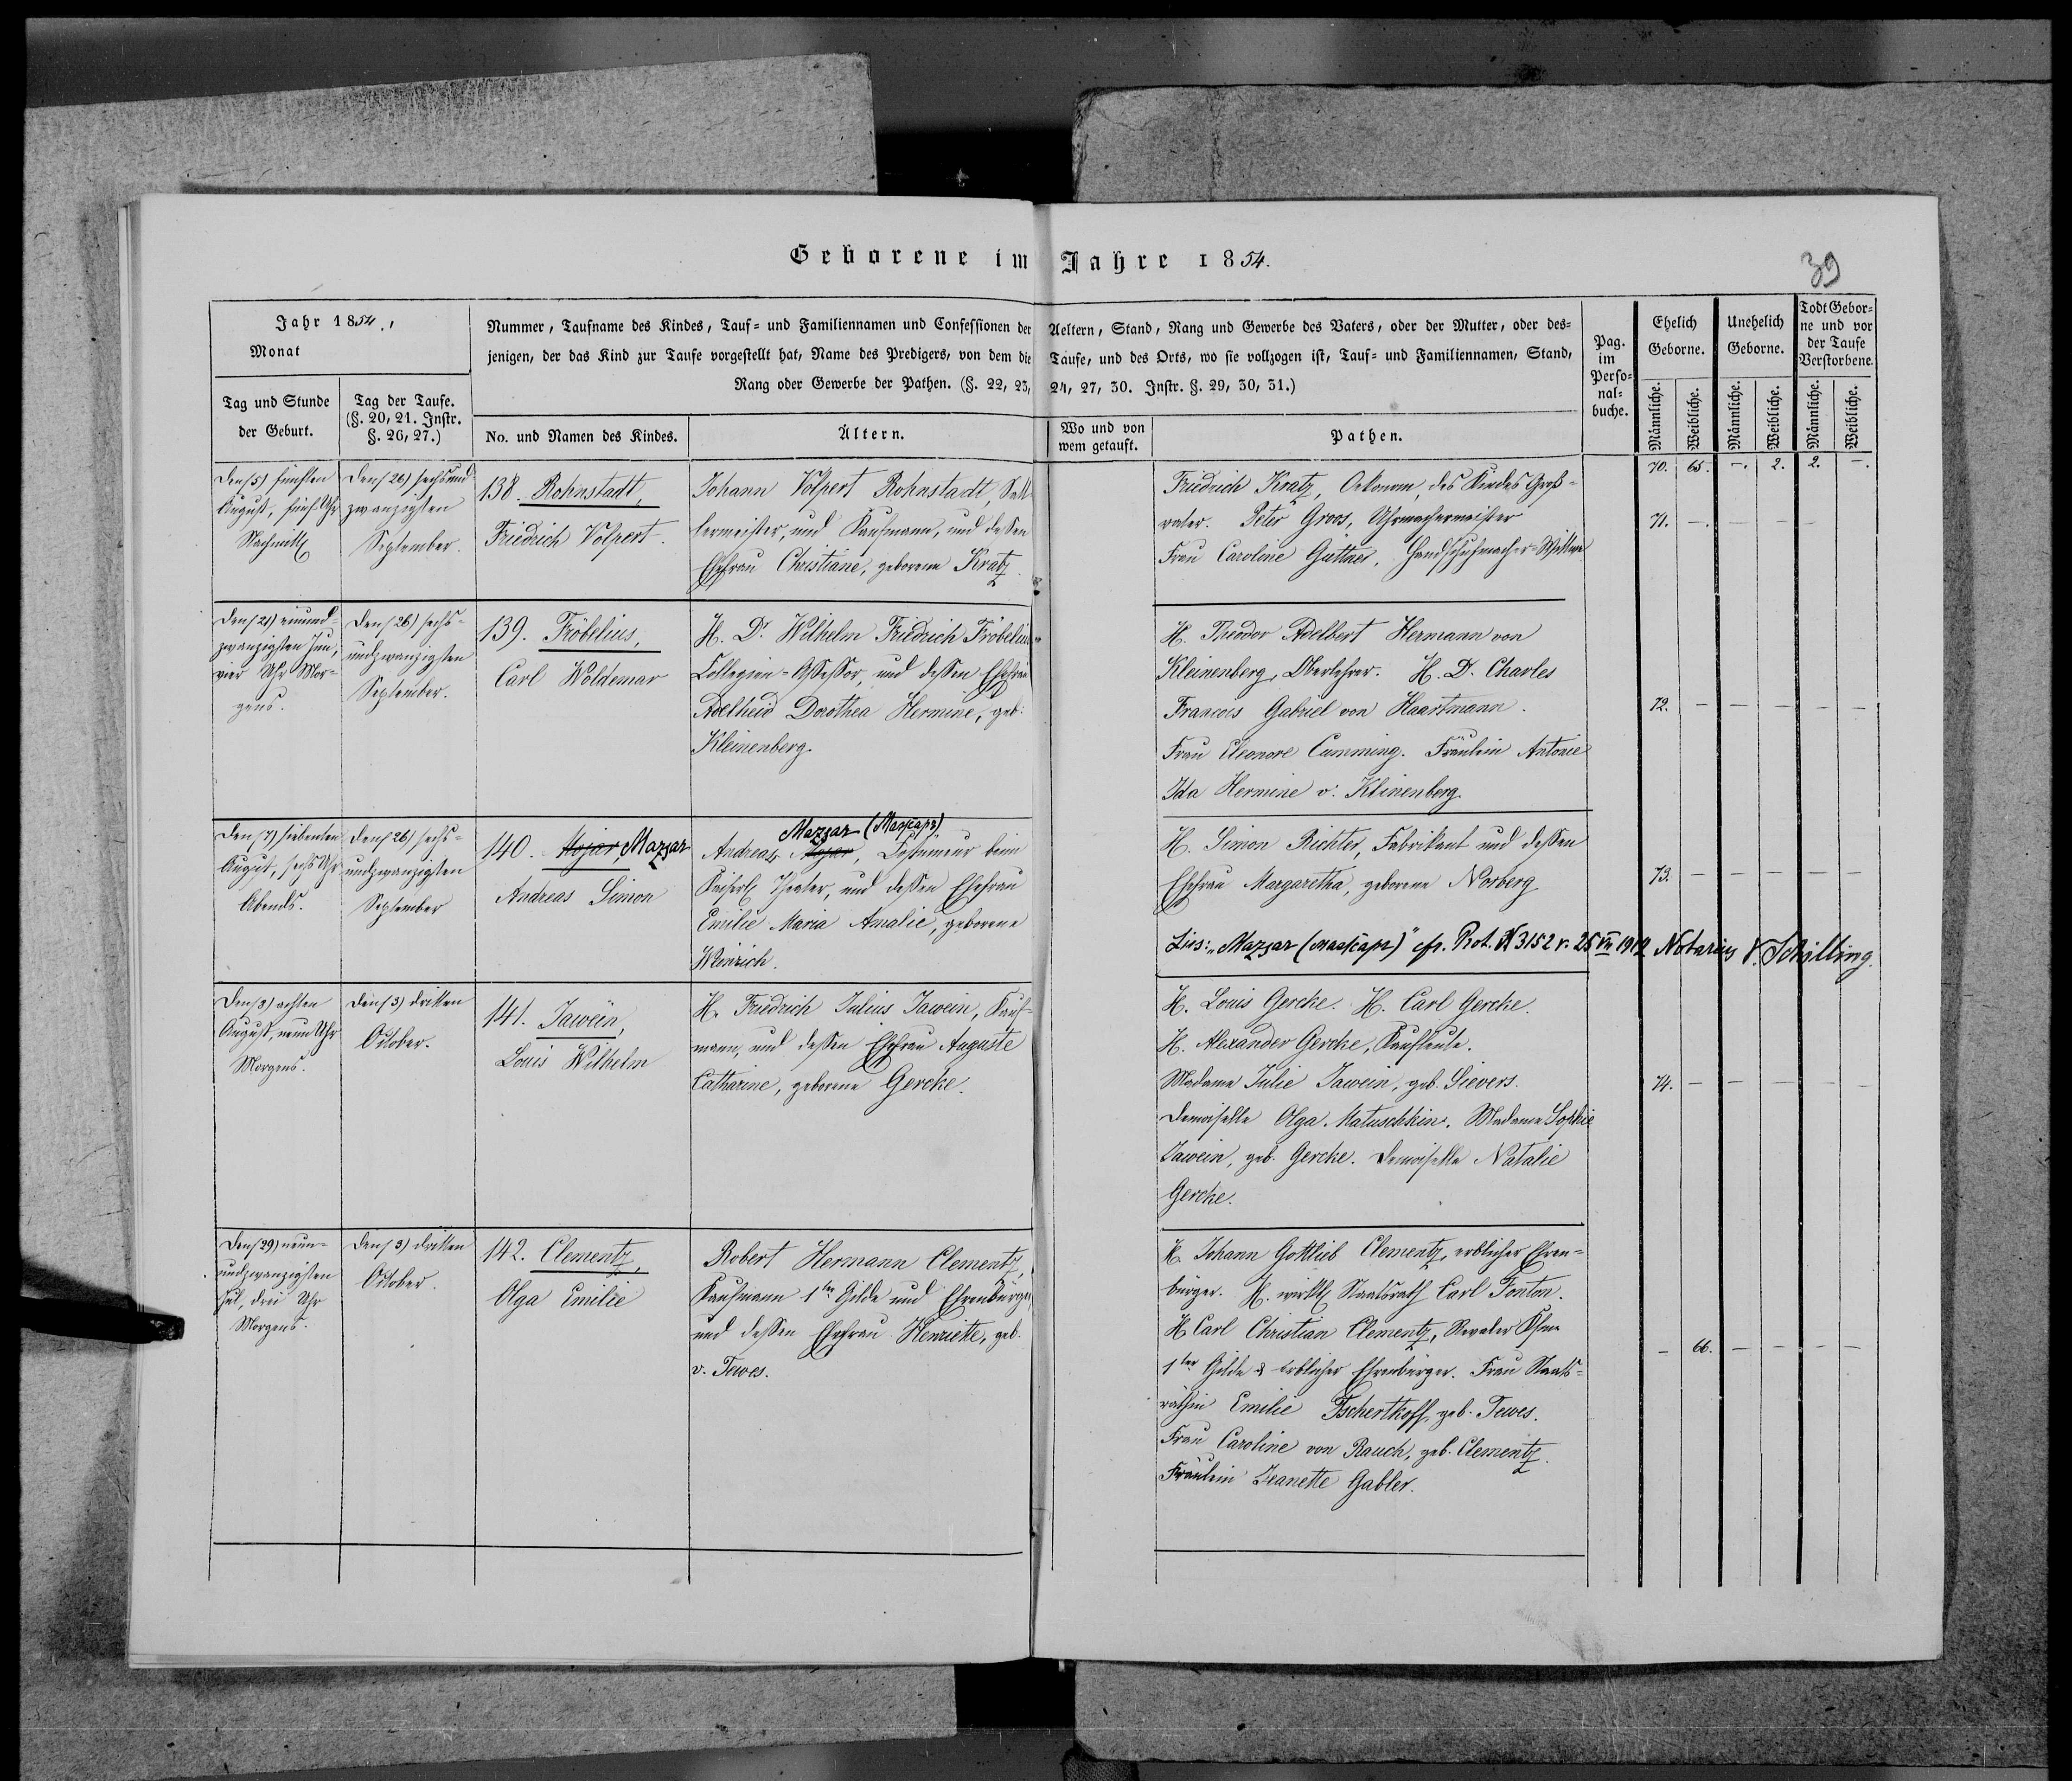 Geborene im Jahre 1854.
39
Jahr 1854.
Monat
Tag und Stunde
der Geburt.
Tag der Taufe.
(§. 20, 21. Instr.
§. 26, 27.)
Nummer, Taufname des Kindes, Tauf- und Familiennamen und Confessionen der Aeltern, Stand, Rang und Gewerbe des Vaters, oder der Mutter, oder des-
jenigen, der das Kind zur Taufe vorgestellt hat, Name des Predigers, von dem die Taufe, und des Orts, wo sie vollzogen ist, Tauf- und Familiennamen, Stand,
Rang oder Gewerbe der Pathen. (§. 22, 23, 24, 27, 30. Instr. §. 29, 30, 31.)
No. und Namen des Kindes.
Ältern.
Wo und von
wem getauft.
Pathen.
Pag.
im
Perso-
nal-
buche.
Ehelich
Geborne.
Unehelich
Geborne.
Todt Gebor-
ne und vor
der Taufe
Verstorbene.
Männliche.
Weibliche.
Männliche.
Weibliche.
Männliche.
Weibliche.
70. 65. —. 2. 2. —.
Den (5) fünften
August, fünf Uhr
Nachmitt
Den (26) sechsund
zwanzigsten
September.
138. Rohnstadt,
Friedrich Volpert.
Johann Volpert Rohnstadt, Satt
lermeister, und Kaufmann, und dessen
Ehefrau Christiane, geborene Kratz.
Friedrich Kratz, Oekonom, des Kindes Groß-
vater. Peter Groos, Uhrmachermeister
Frau Caroline Guttner, Handschuhmacher-Wittwe
71. — — — —
Den (21) einund-
zwanzigsten Juni,
vier Uhr Mor-
gens.
Den (26) sechs-
undzwanzigsten
September.
139. Fröbelius,
Carl Woldemar
H. Dr. Wilhelm Friedrich Fröbelius
Collegien-Assessor, und dessen Ehefrau
Adelheid Dorothea Hermine, geb.
Kleinenberg.
H. Theodor Adelbert Hermann von
Kleinenberg, Oberlehrer. H. D. Charles
Francois Gabriel von Haartmann.
Frau Eleonore Cumming. Fräulein Antonie
Ida Hermine v. Kleinenberg
72. — — — — —
Den (7) siebenten
August, sechs Uhr
Abends.
Den (26) sechs-
undzwanzigsten
September
140. Mojar Mazzar
Andreas Simon
Mazzar
Andreas Mojar, beim
Kaiserl Theater, und dessen Ehefrau
Emilie Maria Amalie, geborene
Weinrich.
H. Simon Richter, Fabrikant und dessen
Ehefrau Margaretha, geborene Norberg
73. — — — — —
Lies: "Mazzar" cfr. Prot. N 3152 v. 25 VII 1912 Notarius V. Schilling.
Den (8) achten
August, neun Uhr
Morgens.
Den (3) dritten
October.
141. Jawein,
Louis Wilhelm
H. Friedrich Julius Jawein, Kauf-
mann, und dessen Ehefrau Auguste
Catharine, geborene Gercke.
H. Louis Gercke. H. Carl Gercke.
H. Alexander Gercke, Kaufleute.
Madame Julie Jawein, geb. Sievers.
Demoiselle Olga Matuschkin. Madame Sophie
Jawein, geb. Gercke. Demoiselle Natalie
Gercke.
74. — — — — —
Den (29) neun-
undzwanzigsten
Jul, drei Uhr
Morgens.
Den (3) dritten
October.
142. Clementz,
Olga Emilie
Robert Hermann Clementz,
Kaufmann 1ter Gilde und Ehrenbürger,
und dessen Ehefrau Henriette, geb.
v. Tewes.
H. Johann Gottlieb Clementz, erblicher Ehren-
bürger. H. wirkl Staatsrath Carl Tonton.
H. Carl Christian Clementz, Revaler
1ter Gilde & erblicher Ehrenbürger. Frau Staats-
räthin Emilie Tschertkoff, geb. Tewes.
Frau Caroline von Rauch, geb. Clementz.
Fräulein Jeanette Gabler.
— 66. — — — —